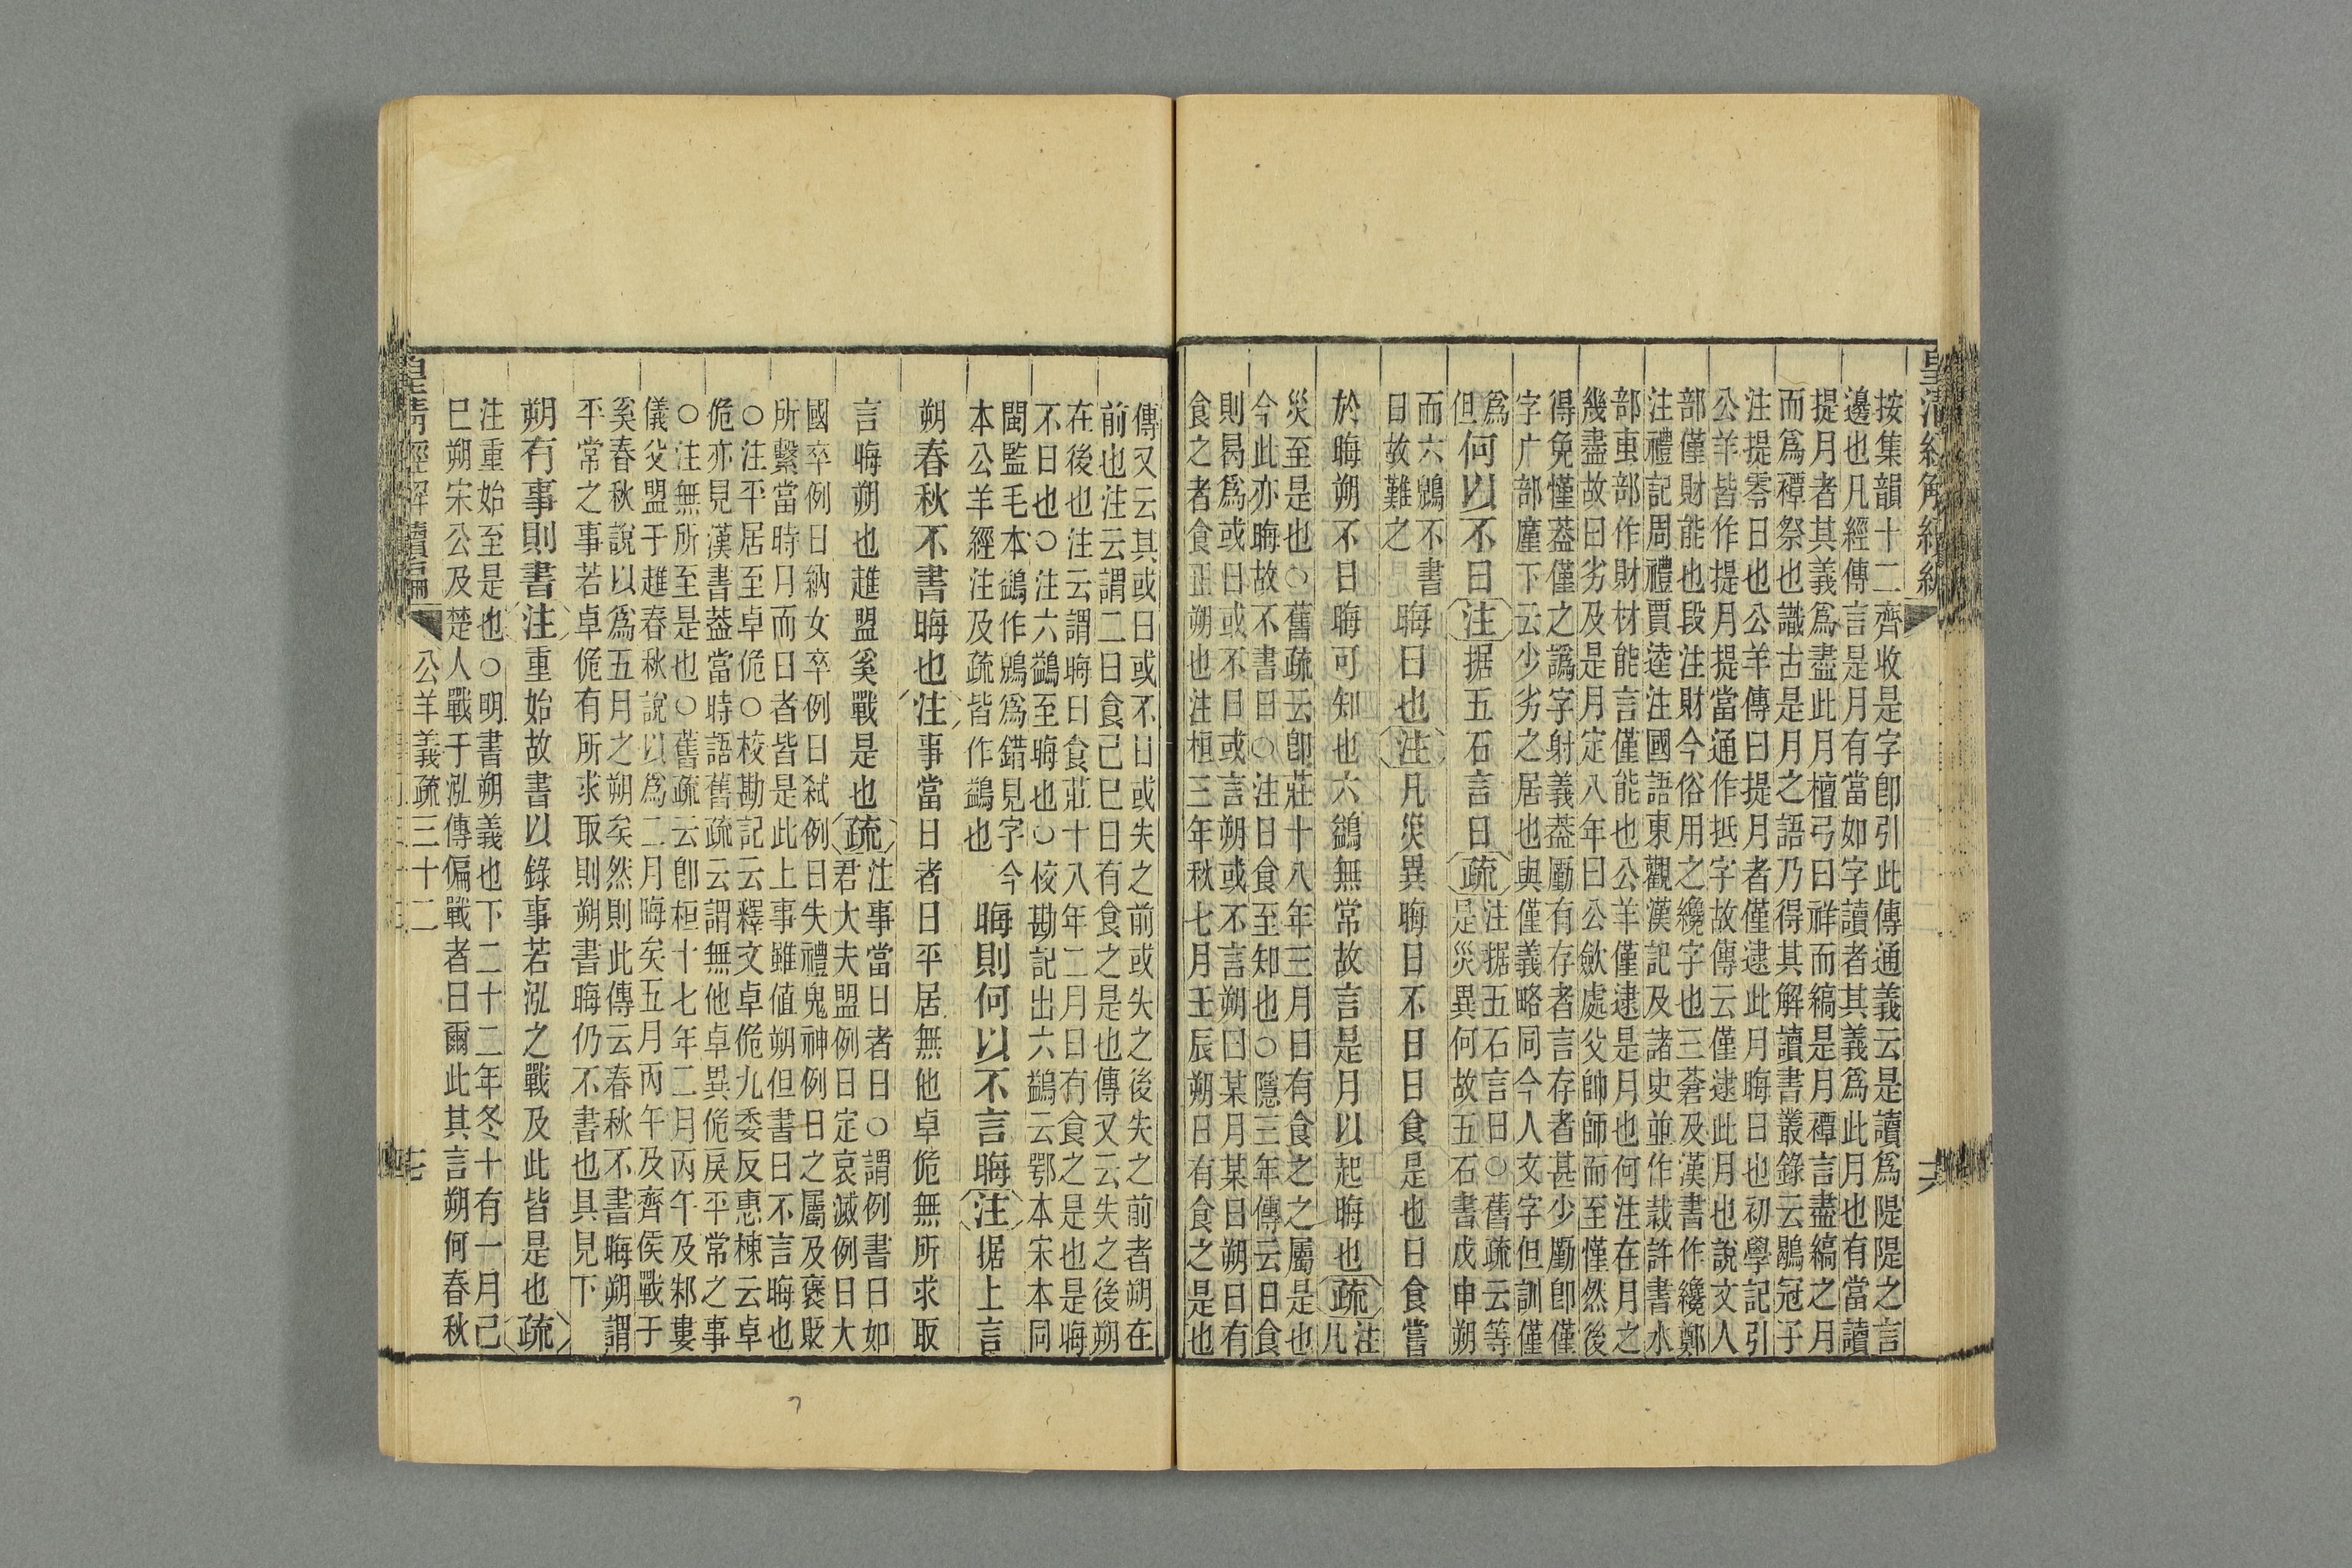 皇清經解續編
按集韻十二齊收是字卽引此傳通義云是讀爲隄隄之言
邊也凡經傳言是月有當如字讀者其義爲此月也有當讀
提月者其義爲盡此月檀弓曰祥而縞是月禫言盡縞之月
而爲禫祭也識古是月之語乃得其解讀書叢錄云鶡冠子
注提零日也公羊傳曰提月者僅逮此月晦日也初學記引
公羊皆作提月提當通作抵字故傳云僅逮此月也說文人
部僅財能也段注財今俗用之纔字也三蒼及漢書作纔鄭
注禮記周禮賈逵注國語東觀漢記及諸史並作栽許書水
部䖵部作財材能言僅能也公羊僅逮是月也何注在月之
幾盡故曰劣及是月定八年曰公斂處父帥師而至慬然後
得免慬葢僅之譌字射義葢勱有存者言存者甚少勱卽僅
字广部廑下云少劣之居也與僅義略同今人文字但訓僅
爲
但
何以不日注据五石言日疏
注据五石言日○舊疏云等
是災異何故五石書戊申朔
而六鷁不書
日故難之
晦日也注凡災異晦日不日日食是也日食嘗
於晦朔不日晦可知也六鷁無常故言是月以起晦也疏
注
凡
災至是也○舊疏云卽莊十八年三月日有食之之屬是也
今此亦晦故不書日○注日食至知也○隱三年傳云日食
則曷爲或日或不日或言朔或不言朔曰某月某日朔日有
食之者食正朔也注桓三年秋七月壬辰朔日有食之是也
六
傳又云其或日或不日或失之前或失之後失之前者朔在
前也注云謂二日食己巳日有食之是也傳又云失之後朔
在後也注云謂晦日食莊十八年二月日有食之是也是晦
不日也○注六鷁至晦也○校勘記出六鷁云鄂本宋本同
閩監毛本鷁作鶂爲錯見字今
本公羊經注及疏皆作鷁也
晦則何以不言晦注据上言
朔春秋不書晦也注事當日者日平居無他卓佹無所求取
言晦朔也趡盟奚戰是也疏
注事當日者日○謂例書日如
君大夫盟例日定哀滅例日大
國卒例日納女卒例日弒例日失禮鬼神例日之屬及褒貶
所繫當時月而日者皆是此上事雖値朔但書日不言晦也
○注平居至卓佹○校勘記云釋文卓佹九委反惠棟云卓
佹亦見漢書葢當時語舊疏云謂無他卓異佹戾平常之事
○注無所至是也○舊疏云卽桓十七年二月丙午及邾婁
儀父盟于趡春秋說以爲二月晦矣五月丙午及齊侯戰于
奚春秋說以爲五月之朔矣然則此傳云春秋不書晦朔謂
平常之事若卓佹有所求取則朔書晦仍不書也具見下
朔有事則書注重始故書以錄事若泓之戰及此皆是也疏
注重始至是也○明書朔義也下二十二年冬十有一月己
巳朔宋公及楚人戰于泓傳偏戰者日爾此其言朔何春秋
皇清經解續編 公羊義疏三十二 七